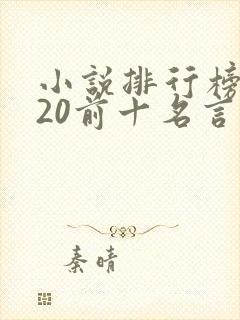 小說排行榜
20前十名言
秦晴